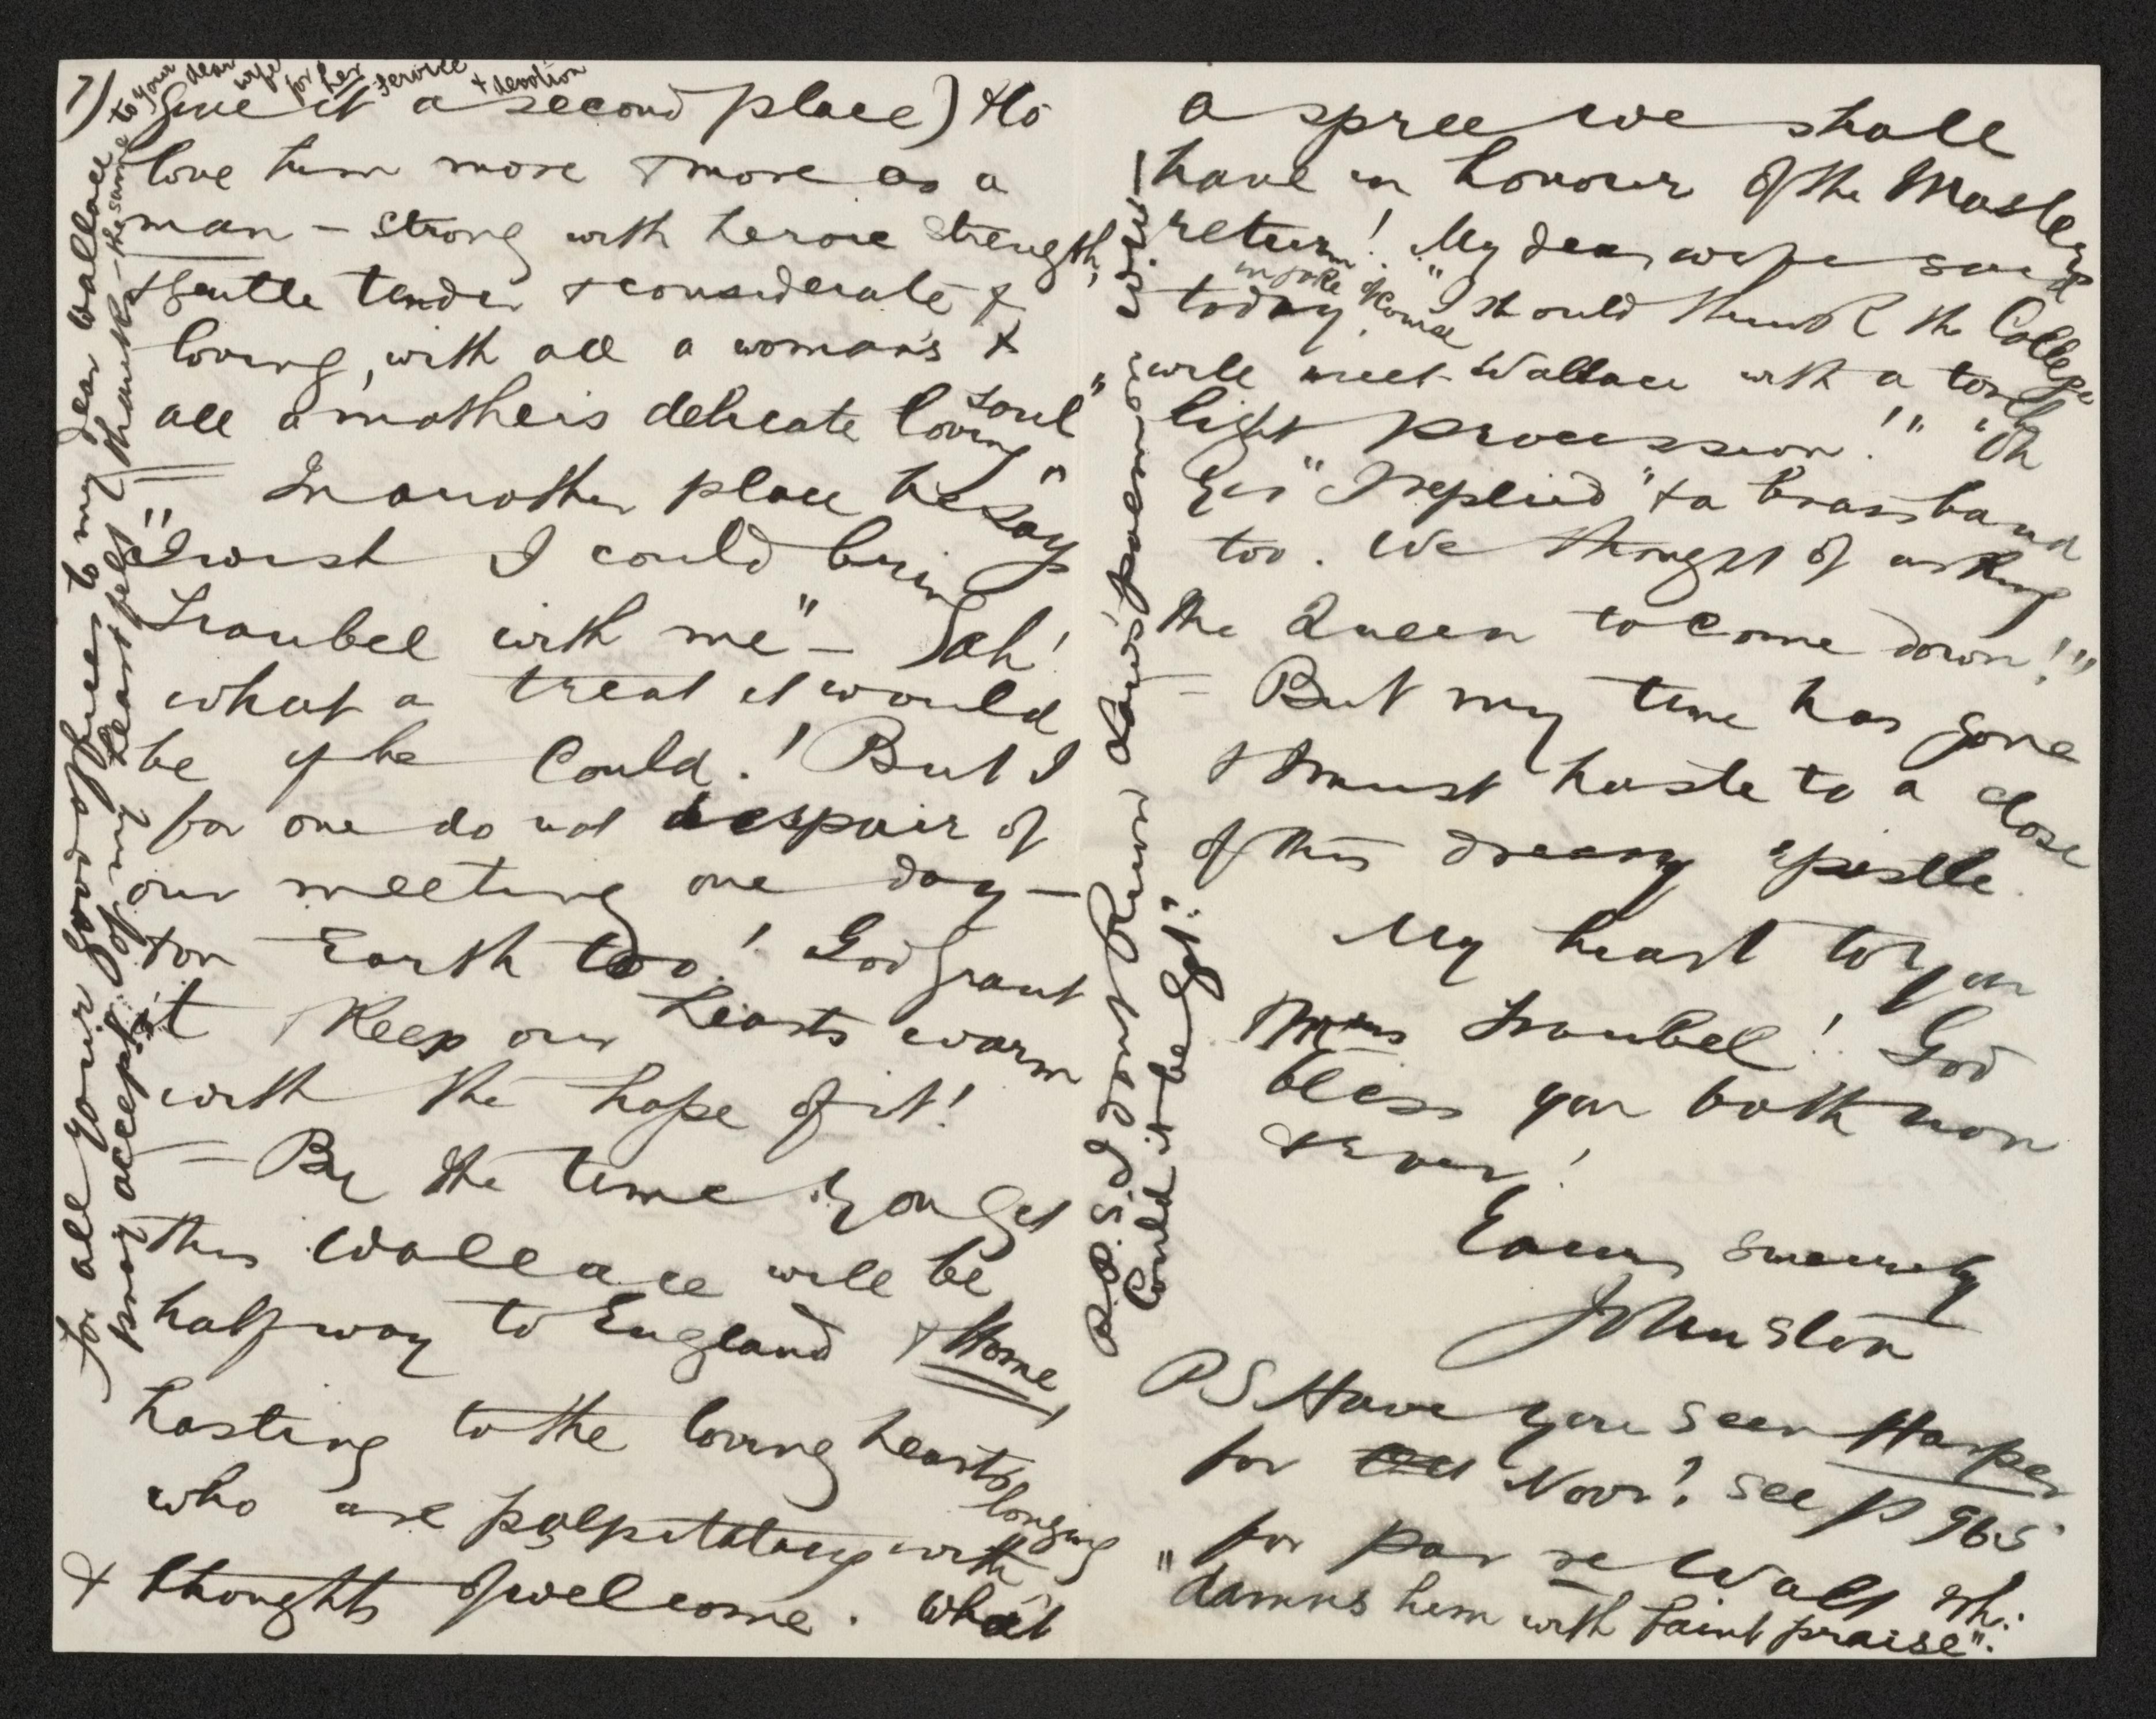 7) give it a second place) & to
love him more & more as a
man — strong with heroic strength,
& gentle tender & considerate &
loving, with all a woman's &
all a mother's delicate loving soul"
In another place he says
"I wish I could bring
Traubel with me" — Ah!
what a treat it would
be if he could! But I
for one do not despair of
our meeting one day —
& on Earth too! God grant
it & keep our hearts warm
with the hope of it!
= By the time you get
this Wallace will be
half way to England & Home,
hasting to the loving hearts
who are palpitating with longing
& thoughts of welcome. What
for all your good offices to my dear Wallace
pray accept my heart felt thanks — the same to your dear wife for her service & devotion
a spree we shall
have in honour of the Master's
return! My dear wife said
today, in joke of course "I should think the College
will meet Wallace with a torch
light procession!" "Oh
Yes" I replied "& a brass band
too. We thought of asking
the Queen to come down!"
= But my time has gone
& I must haste to a close
of this dreary epistle.
My heart to you
Traubel! God
bless you both now
& ever!
Yours sincerely
Johnston
PS Have you seen Harper
for Novr? See p 965
for par re Walt wh:
"damns him with faint praise".
P.P.S. I don't know Law's poem
Could it be got?